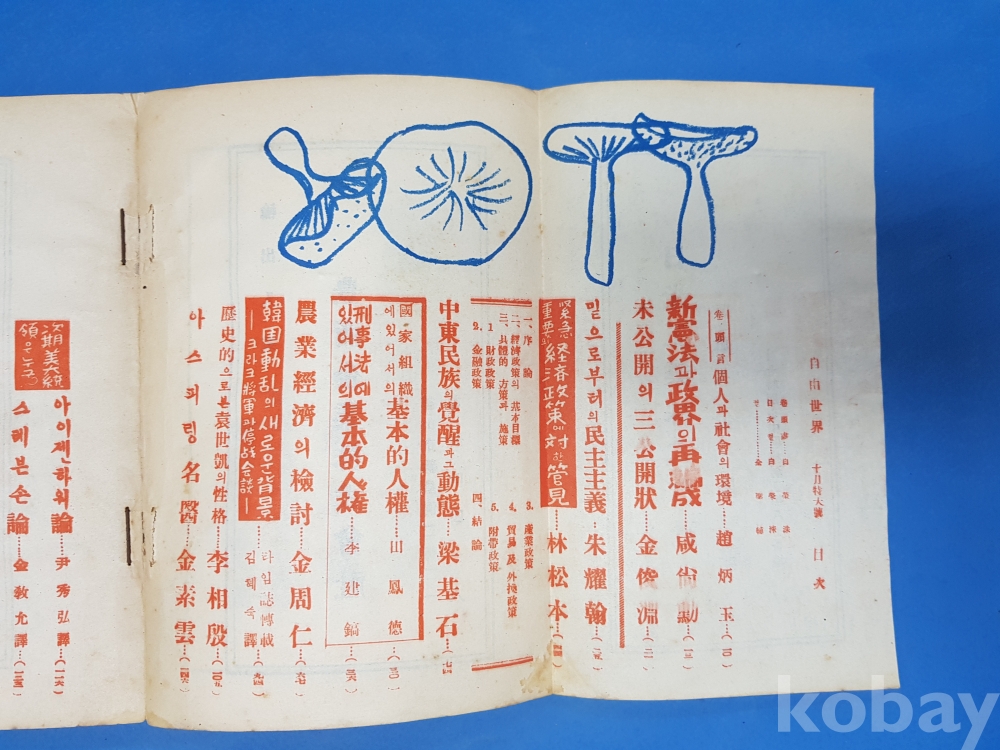 自由世界 十月特大號 目次
卷頭言 個人과 社會의 環境…趙炳玉…(一〇)
新憲法과 政界의 再編成…咸尙勳…(一三)
未公開의 三公開狀…金俊淵…(二一)
밑으로부터의 民主主義·朱耀翰…(二五)
緊急重要한 経済政策에 対한 管見…林松本…
一、序論
二、經濟政策의 基本目標
三、具體的 方策과 施策
1 財政政策
2、金融政策
3、產業政策
4、貿易 及 外換政策
5、附帶政策
四、結論
中東民族의 覺醒과 그 動態 梁基石…(七四)
國家組織에 있어서의 基本的 人權 田鳳德…(三〇)
刑事法에 있어서의 基本的 人權 李建鎬…(三六)
農業經濟의 檢討…金周仁…(六七)
韓国動乱의 새로운 背景 —크라크 将軍과 停战会談— 타임誌轉載 김혜숙 譯…(九四)
歷史的으로 본 袁世凱의 性格…李相殷…(一〇五)
아스피링 名醫…金素雲…(一四六)
次期美大統領은 누구
아이젠하워論…尹秀弘 譯…(一一六)
스티븐손論…金敎允 譯…(一二三)
kobay